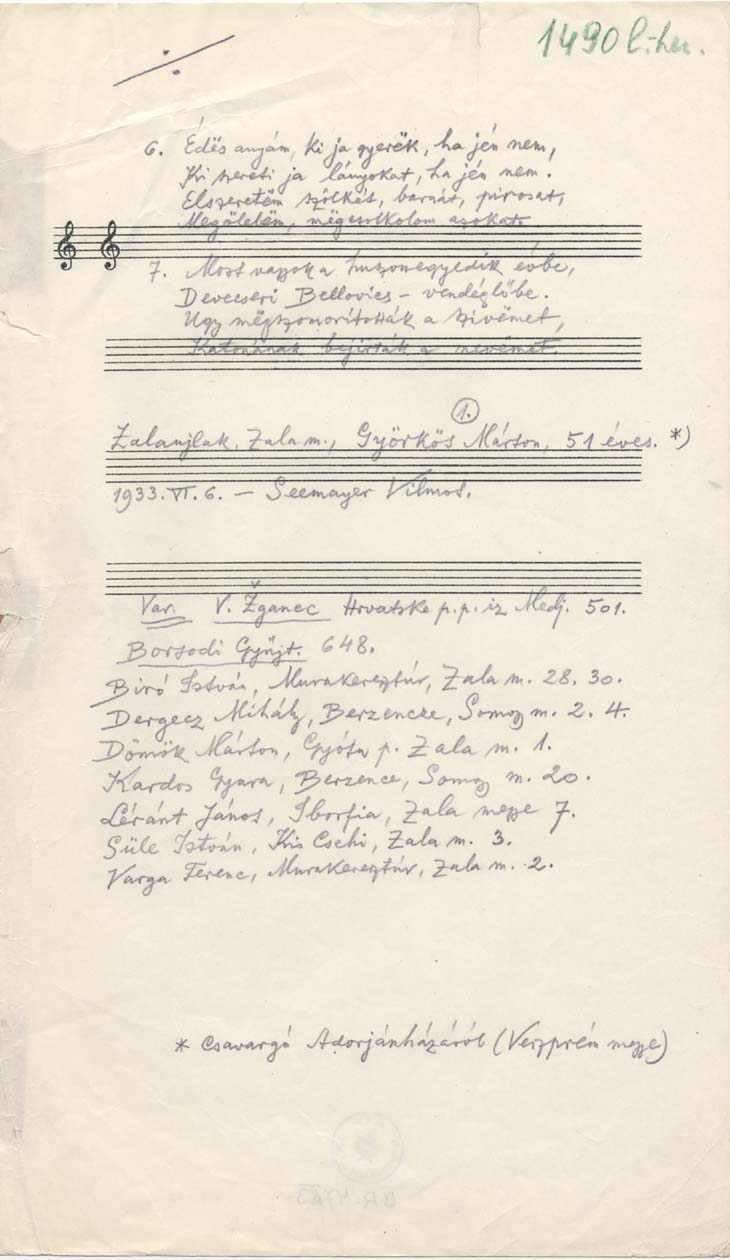 1490 l-her.
6. Édës anyám, ki ja gyerëk, ha jén nem,
Ki szereti ja lányokat, ha jén nem.
Elszeretëm szőkét, barnát, pirosat,
Mëgölelëm, mëgcsolkolom azokat.
7. Most vagyok a huszonegyedik évbe,
Devecseri Bellovics - vendéglőbe.
Ugy mëgszomorították a szivëmet,
Katonának beírták a nevëmet.
1.
Zalaujlak, Zala m., Györkös Márton, 51 éves. *)
1933. VI. 6. — Seemayer Vilmos.
Var. V. Žganec Hrvatske p.p. iz Medj. 501.
Borsodi Gyűjt. 648.
Biró István, Murakeresztúr, Zala m. 28. 30.
Dergecz Mihály, Berzencze, Somogy m. 2. 4.
Dömök Márton, p. Zala m. 1.
Kardos Gyura, Berzence, Somogy m. 20.
Léránt János, Iborfia, Zala megye 7.
Süle István, Kis Csehi, Zala m. 3.
Varga Ferenc, Murakeresztúr, Zala m. 2.
* Csavargó Adorjánházáról (Veszprém megye)